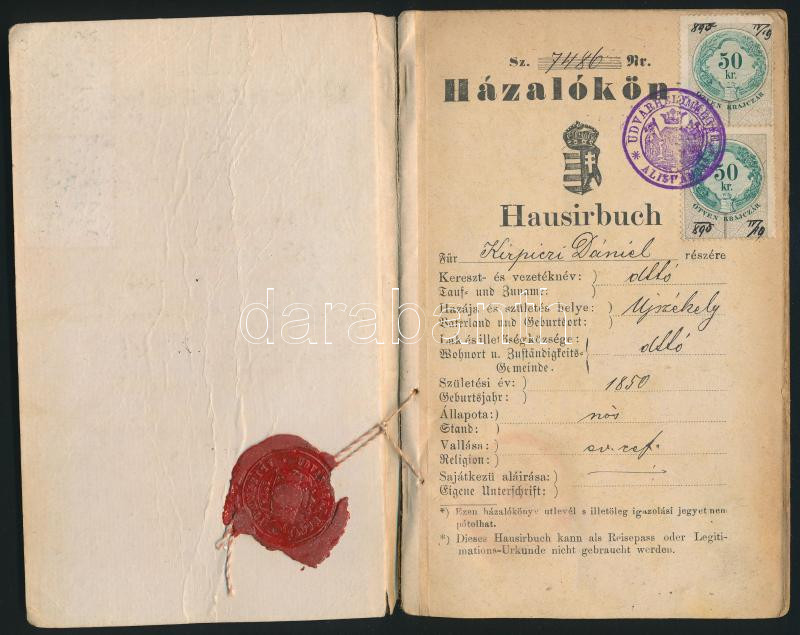 Sz. 7486 Nr.
Házalókön
Hausirbuch
Für Kirpiczi Dániel részére
Kereszt- és vezetéknév:) dttó
Tauf- und Zuname:)
Hazája és születés helye:) Ujszékely
Vaterland und Geburtsort:)
Lak és illetőségközsége:
Wohnort u. Zuständigkeits- dttó
Gemeinde.
Születési év:) 1850
Geburtsjahr:)
Állapota:) nős
Stand:)
Vallása:) ev. ref.
Religion:)
Sajátkezű aláirása:)
Eigene Unterschrift:)
*) Ezen házalókönyv utlevél s illetőleg igazolási jegyet nem
pótolhat.
*) Dieses Hausirbuch kann als Reisepass oder Legiti-
mations-Urkunde nicht gebraucht werden.
895 IV/19
50
kr.
ÖTVEN KRAJCZÁR
50
kr.
ÖTVEN KRAJCZÁR
895 IV/19
darabanth